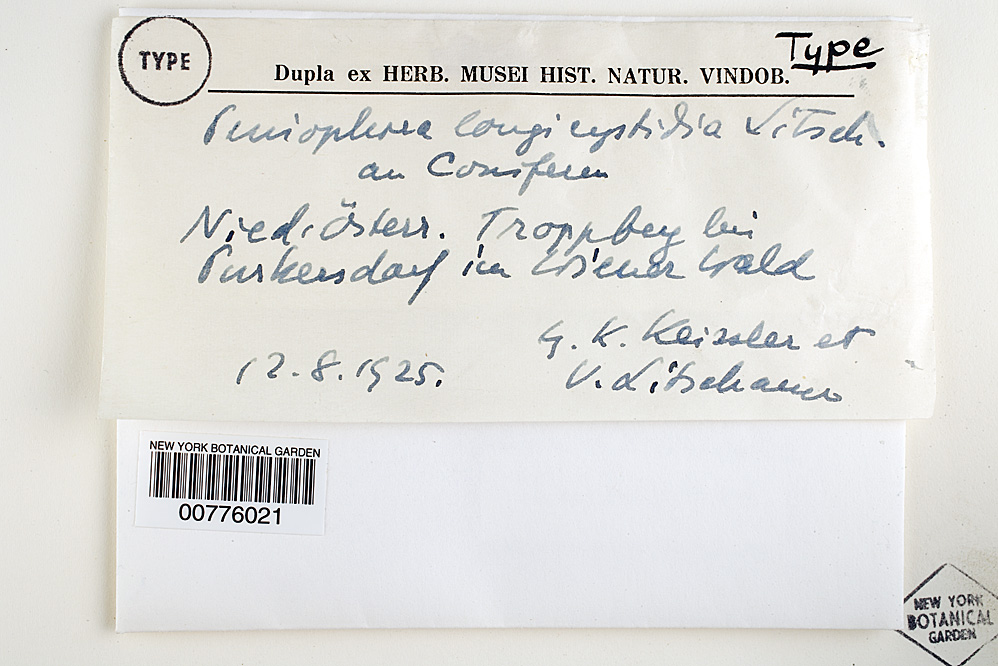 TYPE
Type
Dupla ex HERB. MUSEI HIST. NATUR. VINDOB.
Peniophora longicystidia Litsch.
an Coniferen
Nied. Österr. Troppberg bei
Purkersdorf im Wiener Wald
K. Keissler et
12.8.1925. V. Litschauer
NEW YORK BOTANICAL GARDEN
00776021
NEW YORK
BOTANICAL
GARDEN